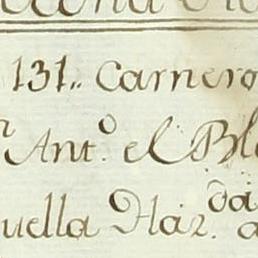 131.. Carnero
Ant.º el Bl
uella Haz.da a